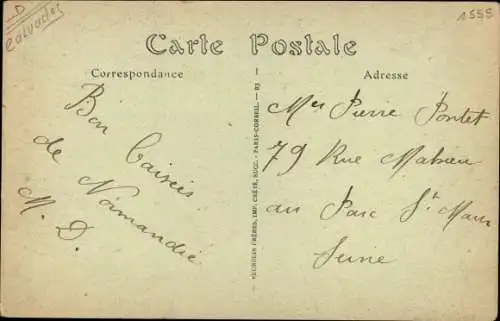 D
Calvados
1555
Carte Postale
Correspondance
Adresse
Bon Baisers
de Normandie
M. D.
Mes Pierre Pontet
79 Rue Mahieu
au Parc St Maur
Seine
IMP. CRÉTÉ, SUCC. - PARIS-CORBEIL